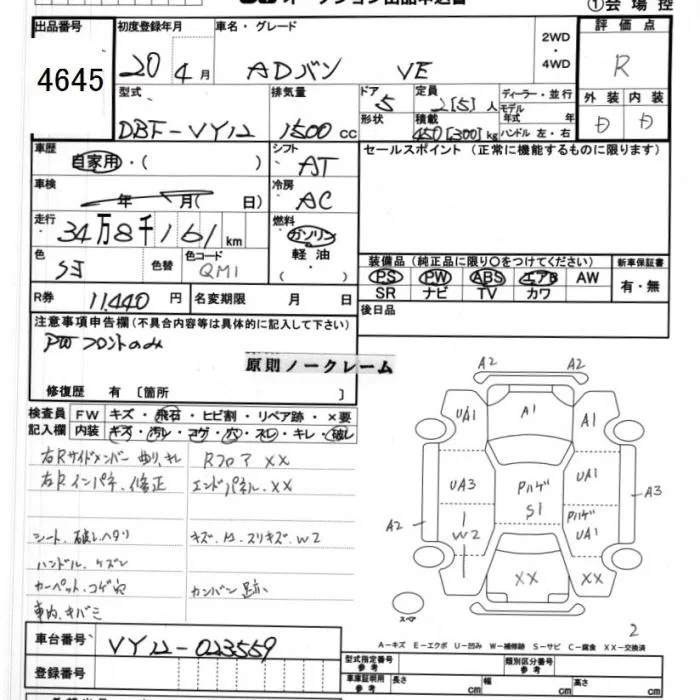 オークション出品申込書
①会場控
出品番号
4645
初度登録年月
20年4月
車名・グレード
ADバン VE
2WD・4WD
評価点
R
型式
DBF-VY12
排気量
1500cc
ドア 5
形状
定員 2[5]人
積載 450[300]kg
ディーラー・並行
モデル年式 年
ハンドル 左・右
外装 内装
D D
車歴
自家用・( )
シフト
AT
セールスポイント (正常に機能するものに限ります)
車検
年 月( 日)
冷房
AC
走行
34万8千161km
燃料
ガソリン
軽油
・( )
色
SI
色替
色コード
QM1
装備品 (純正品に限り○をつけてください)
新車保証書
PS PW ABS エアB AW
SR ナビ TV カワ
有・無
R券 11,440円
名変期限 月 日
後日品
注意事項申告欄 (不具合内容等は具体的に記入して下さい)
PWフロントのみ
原則ノークレーム
修復歴 有 [箇所 ]
検査員記入欄
FW キズ・飛石・ヒビ割・リペア跡・×要
内装 キズ・汚レ・コゲ・穴・スレ・キレ・破レ
右Rサイドメンバー 曲リ、キレ Rフロア XX
右Rインパネ、修正 エンドパネル、XX
シート、破レ、ヘタリ
ハンドル、ケズレ
カーペット、コゲ穴 カンバン跡
車内、キバミ
A2 A2
UA1 A1 A1
UA3 Pハゲ S1 UA1
A2 W2 Pハゲ UA1 A3
XX XX
スペア
2
A-キズ E-エクボ U-凹み W-補修跡 S-サビ C-腐食 XX-交換済
車台番号 VY12-023559
登録番号
型式指定番号 参考
類別区分番号 参考
車庫証明用 参考 長さ cm 幅 cm 高さ cm